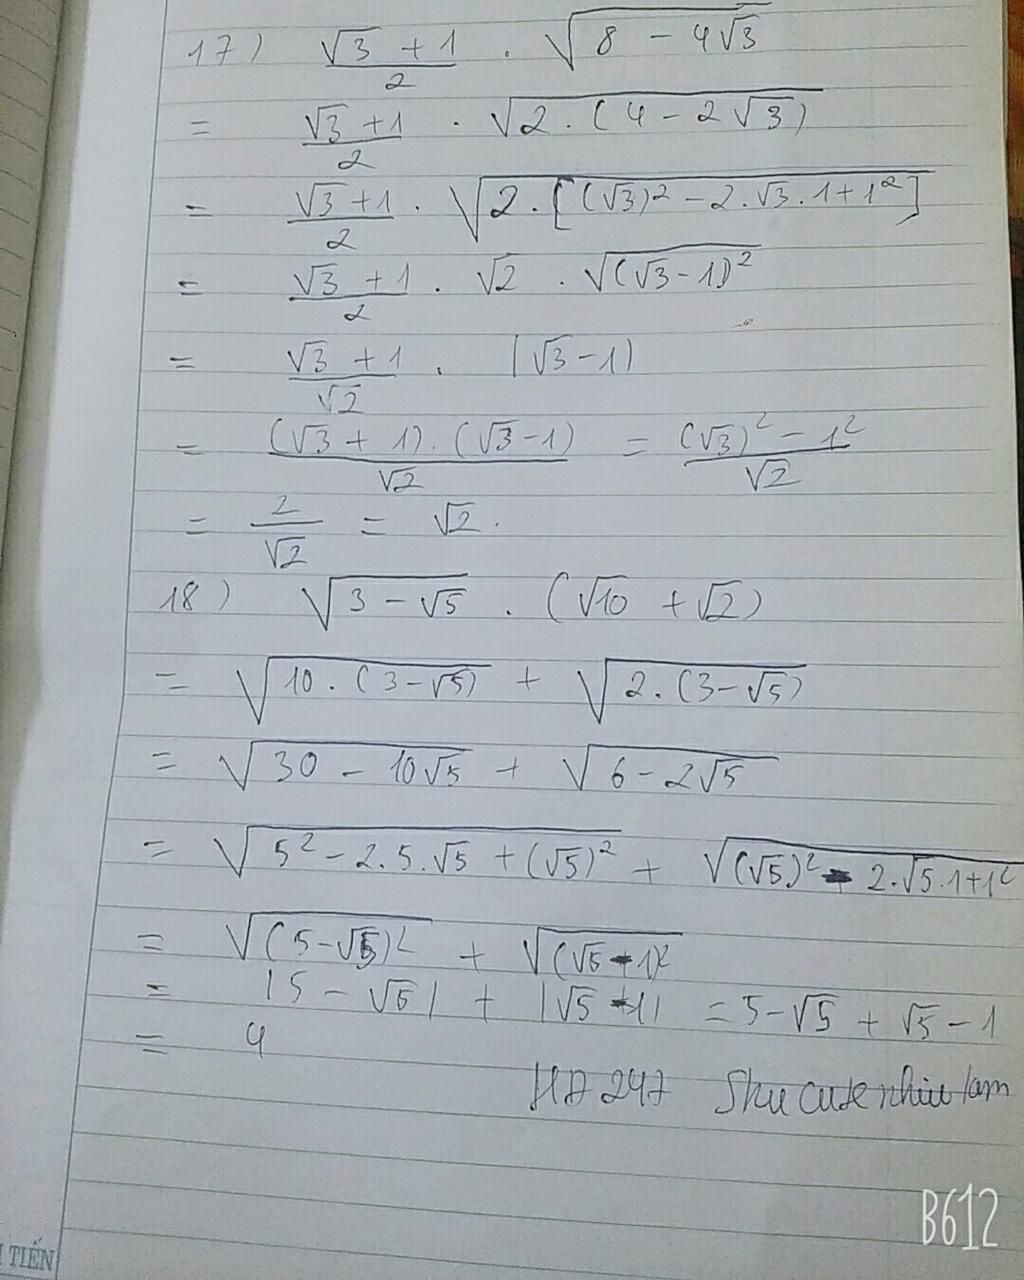 17) (√3 + 1)/2 . √(8 - 4√3)
= (√3 + 1)/2 . √(2 . (4 - 2√3))
= (√3 + 1)/2 . √(2 . [(√3)² - 2.√3.1 + 1²])
= (√3 + 1)/2 . √2 . √((√3 - 1)²)
= (√3 + 1)/√2 . |√3 - 1|
= ((√3 + 1).(√3 - 1))/√2 = ((√3)² - 1²)/√2
= 2/√2 = √2.
18) √(3 - √5) . (√10 + √2)
= √(10.(3 - √5)) + √(2.(3 - √5))
= √(30 - 10√5) + √(6 - 2√5)
= √(5² - 2.5.√5 + (√5)²) + √((√5)² - 2.√5.1 + 1²)
= √((5 - √5)²) + √((√5 - 1)²)
= |5 - √5| + |√5 - 1| = 5 - √5 + √5 - 1
= 4
HD 247
B612
TIẾN